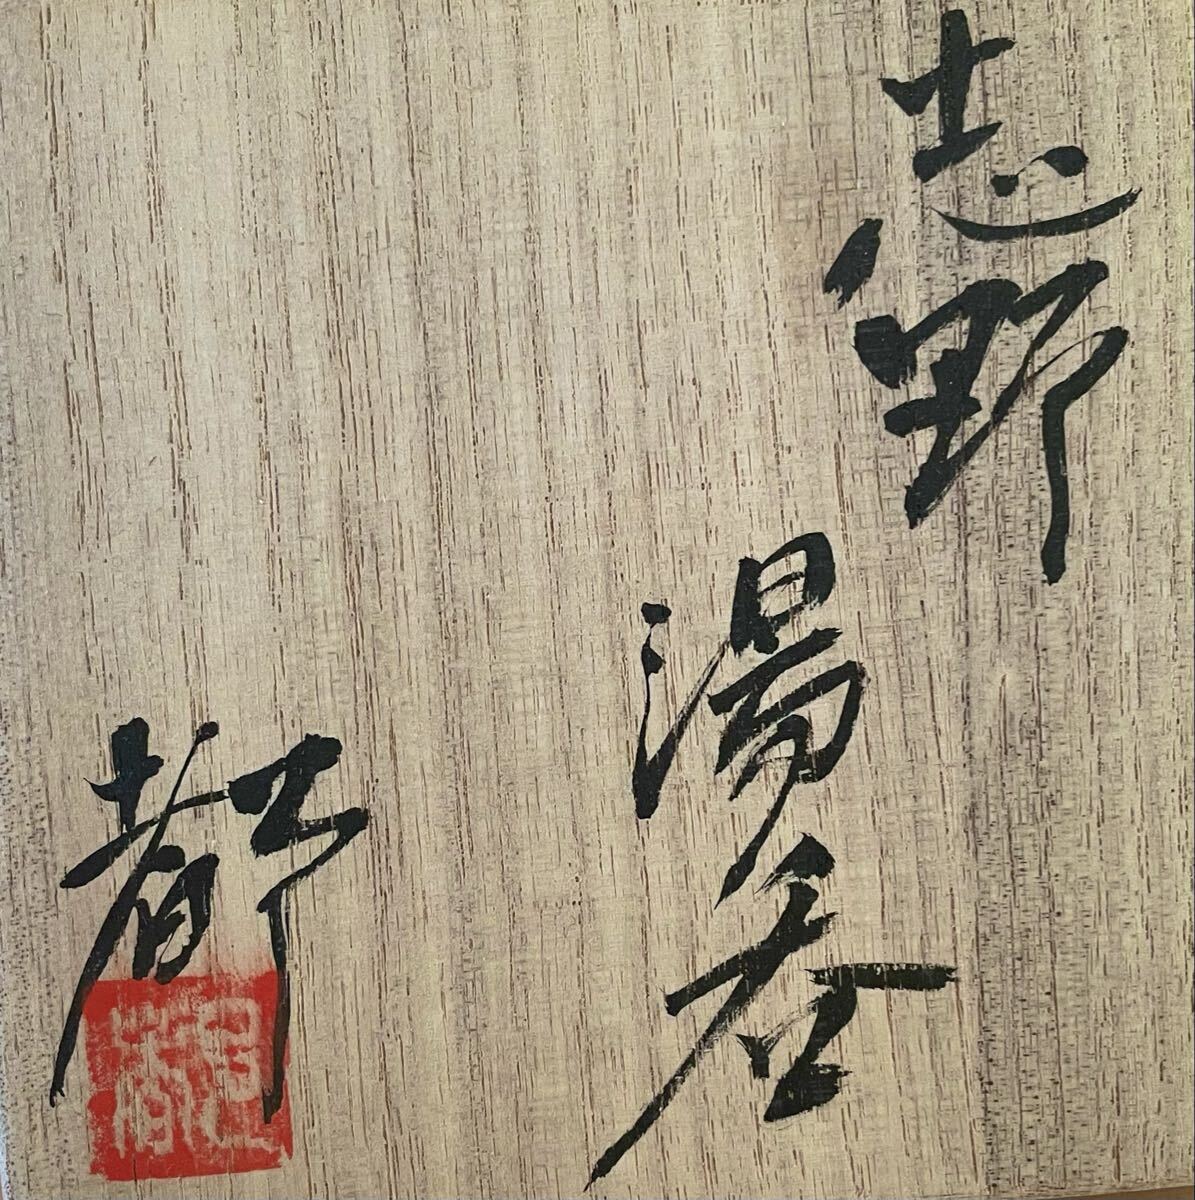 志野
湯呑
都